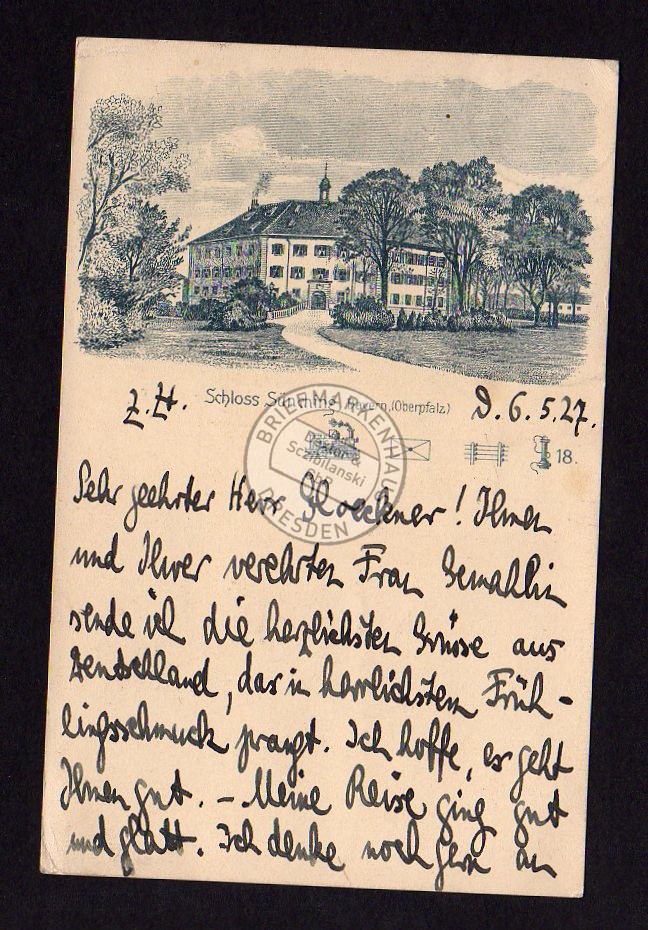 Schloss Sünching, Bayern, (Oberpfalz)
z. Zt. D. 6. 5. 27.
18.
BRIEFMARKENHAUS
Dexler & Sczibilanski Gbr
DRESDEN
Sehr geehrter Herr Gloeckner! Ihnen
und Ihrer verehrten Frau Gemahlin
sende ich die herzlichsten Grüsse aus
Deutschland, das in herrlichstem Früh-
lingsschmuck prangt. Ich hoffe, es geht
Ihnen gut. – Meine Reise ging gut
und glatt. Ich denke noch gern an